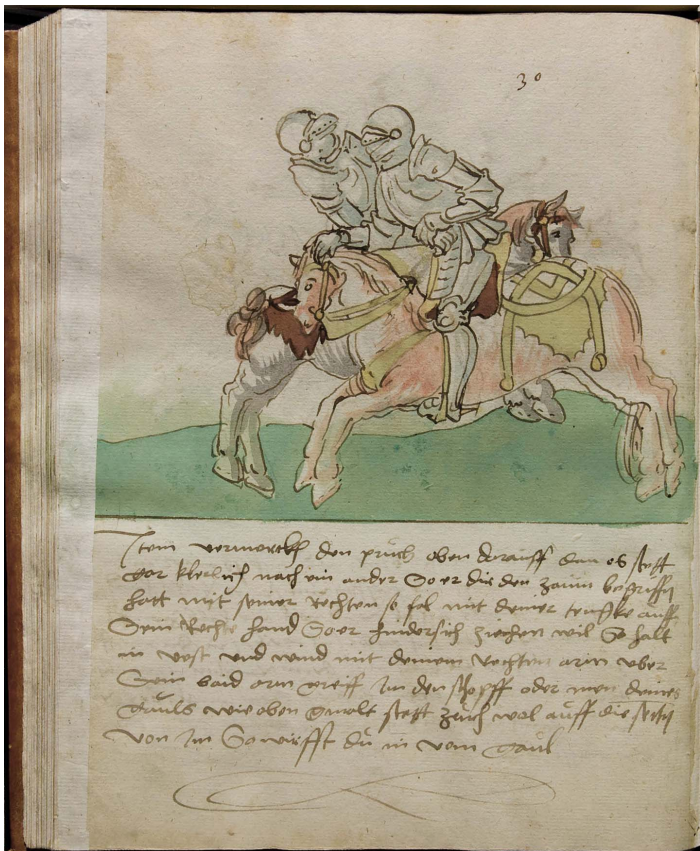 30
Item vermerckh den pruch oben darauff dan es stett
gar klerlich nach ein ander So er dir den zaum begriffn
hatt mit seiner Rechten so fal mit deiner tencke auff
Sein Rechte hand So er hindersich ziechen wil So halt
in vest und wind mit deinem Rechten arm vber
Sein baid arm greiff Im den schopff oder men deines
gauls wie oben gmalt stett zuch wol auff die seitn
von Im So wirffst du in vom gaul